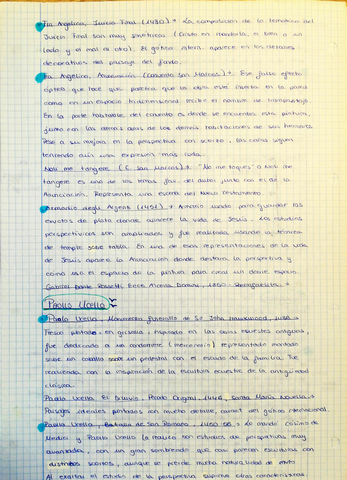 Fra Angelico, Juicio Final (1430) → La composición de la temática del
Juicio Final son muy simétricas (Cristo en mandorla, el bien a un
lado y el mal al otro). El gótico intern. aparece en los detalles
decorativos del paisaje del fondo.
Fra Angelico, Anunciación (Convento San Marcos) → Ese falso efecto
óptico que hace que parezca que la obra está inserta en la pared
como en un espacio tridimensional recibe el nombre de trampantojo.
En la parte habitable del convento es donde se encuentra esta pintura,
junto con las demás salas de las demás habitaciones de sus hermanos.
Pese a su mejora en la perspectiva con scorto, las caras siguen
teniendo aún una expresión más ruda.
Noli me tangere (C. San Marcos) → "No me toques" o Noli me
tangere es uno de los temas fav. del autor junto con el de la
Anunciación. Representa una escena del Nuevo Testamento.
Armadio degli Argenti (1450) → Armario usado para guardar los
exvotos de plata donde aparece la vida de Jesús. Los estudios
perspectivicos son ampliados y fue realizada usando la técnica
de temple sobre tabla. En una de esas representaciones de la vida
de Jesús aparece la Anunciación donde destaca la perspectiva y
como usa el espacio de la pintura para como un doble espacio.
Gabriel Dante Rossetti, Ecce Ancilla Domini, 1850. Prerrafaelista.
Paolo Ucello
Paolo Ucello, Monumento funerario de Sir John Hawkwood, 1436 →
Fresco pintado en grisalla, inspirado en las obras ecuestres antiguas,
fue dedicado a un condotiero (mercenario) representado montado
sobre un caballo sobre un pedestal con el escudo de la familia. Fue
realizada con la inspiración de la escultura ecuestre de la antigüedad
clásica.
Paolo Ucello, El Diluvio, Prado Original, 1446, Santa María Novella →
Paisajes ideales pintados con mucho detalle, caract. del gótico internacional.
Paolo Ucello, Batalla de San Romano, 1450-56 → Lo mandó Cosimo de
Medici y Paolo Ucello la realiza con estudios de perspectivas muy
avanzada, con un gran sombreado que casi parecen esculturas con
distintos scortos, aunque se pierde mucha naturalidad de
Al exaltar el estudio de la perspectiva suprime otras características.